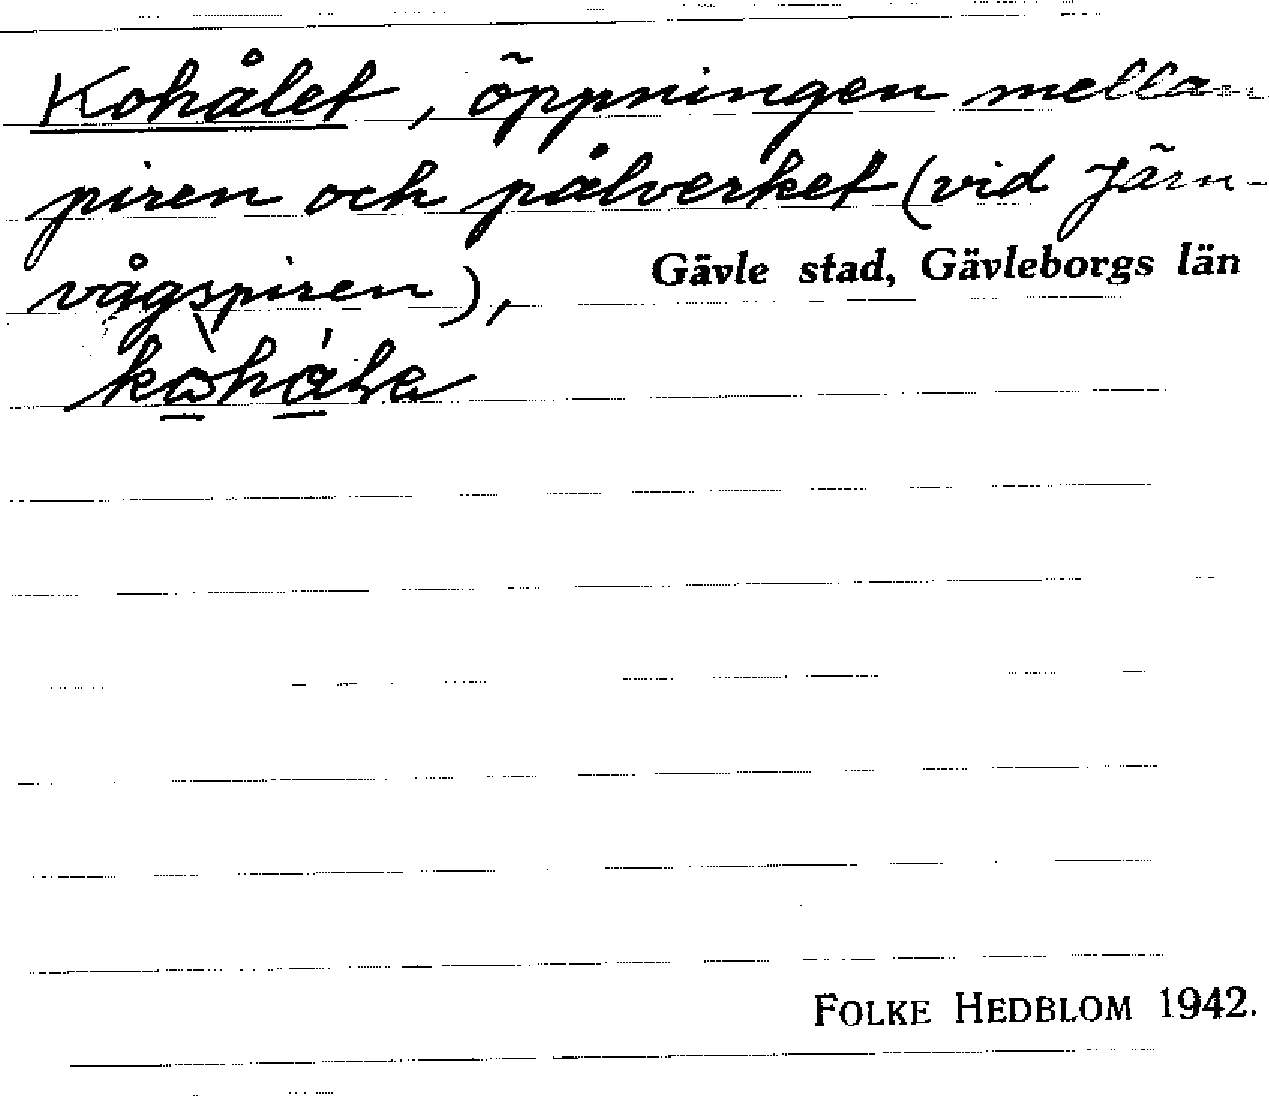 Kohålet, öppningen mellan
piren och pålverket (vid Järn-
vågspiren),
Gävle stad, Gävleborgs län
FOLKE HEDBLOM 1942.